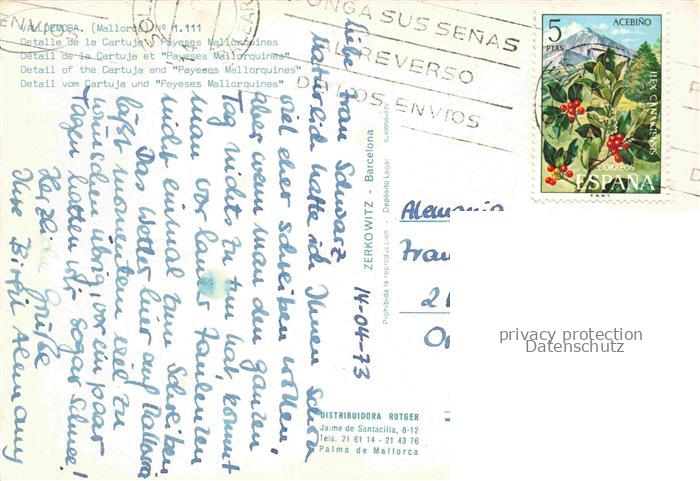 VALLDEMOSA. (Mallorca) Nº 1.111
Detalle de la Cartuja y "Payeses Mallorquines
Détail de la Cartuja et "Payeses Mallorquines"
Detail of the Cartuja and "Payeses Mallorquines"
Detail vom Cartuja und "Payeses Mallorquines"
ENVIOS
PONGA SUS SEÑAS
AL REVERSO
DE LOS ENVIOS
5
PTAS
ACEBIÑO
ILEX CANARIENSIS
CORREOS
ESPAÑA
F.N.M.T.
14-04-73
Liebe Frau Schwarz
Natürlich hatte ich Ihnen schon
viel eher schreiben wollen,
aber wenn man den ganzen
Tag nichts zu tun hat, kommt
man vor lauter Faulenzen
nicht einmal zum Schreiben
Das Wetter hier auf Mallorca
läßt momentan viel zu
wünschen übrig, vor ein paar
Tagen hatten wir sogar Schnee!
Herzliche Grüße
Ihre Birgit Alemany
ZERKOWITZ - Barcelona
Prohibida la reproducción - Depósito Legal
Alemania
Frau
2
DISTRIBUIDORA ROTGER
Jaime de Santacilia, 8-12
Tels. 21 61 14 - 21 43 76
Palma de Mallorca
privacy protection
Datenschutz